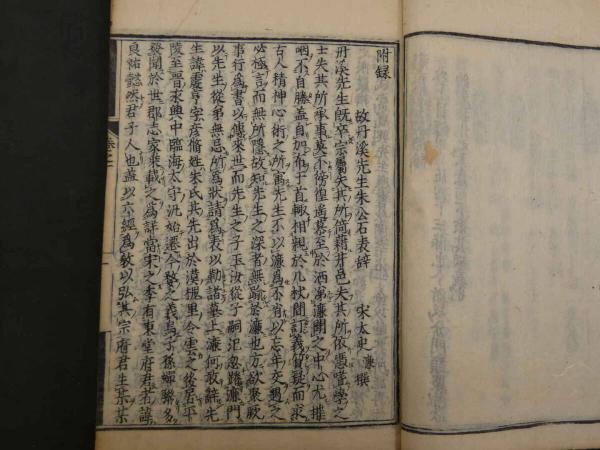 附録
故丹溪先生朱公石表辭
宋太史濂撰
丹溪先生既卒宗屬失其所倚藉井邑失其所依憑嗜學之
士失其所承事莫不徬徨遙慕至於洒涕濂聞之中心尤摧
咽不自勝蓋自加布于首輙相親於几杖間訂義質疑而求
古人精神心術之所寓先生不以濂為不肖以忘年交遇之
必極言而無所隱故知先生之深者無踰於濂也方欲聚厥
事行為書以傳來世而先生之子玉汝從子嗣汜忽踵濂門
以先生從弟無忌所為狀請為表以勒諸墓上濂何敢辭先
生諱震亨字彥脩姓朱氏其先出於漢槐里令雲之後居平
陵至晉永興中臨海太守汎始遷今婺之義烏子孫蟬聯多
發聞於世郡志家乘載之為詳當宋之季有東堂府君者諱
良祐懿然君子人也蓋以六經為教以弘其宗府君生某某